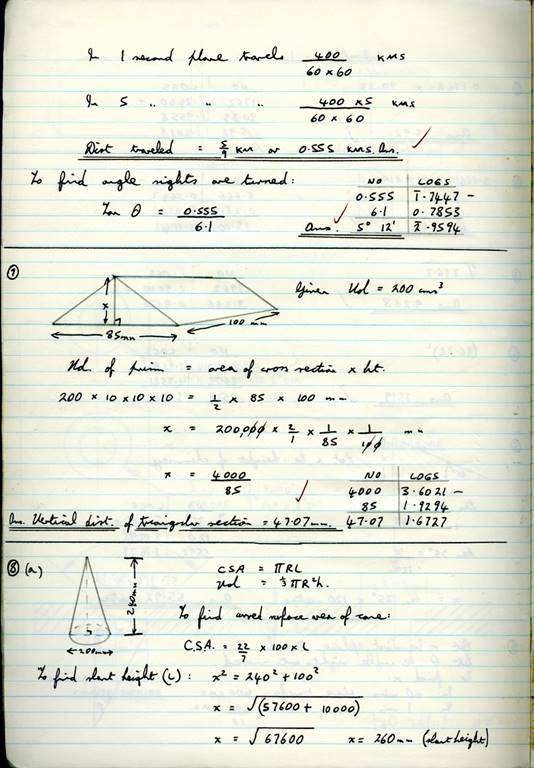 In 1 second plane travels 400 / 60 x 60 KMS
In 5 " " " 400 x 5 / 60 x 60 KMS
Dist traveled = 5/9 KM or 0.555 KMS. Ans.
To find angle sights are turned:
Tan θ = 0.555 / 6.1
NO LOGS
0.555 1̄.7447 -
6.1 0.7853
Ans. 5° 12' 2̄.9594
⑦
x
85mm
100 mm
Given Vol = 200 cms³
Vol. of prism = area of cross section x ht.
200 x 10 x 10 x 10 = 1/2 x 85 x 100 mm
x = 200,000 x 2/1 x 1/85 x 1/100 mm
x = 4000 / 85
NO LOGS
4000 3.6021 -
85 1.9294
47.07 1.6727
Ans. Vertical dist. of triangular section = 47.07mm.
⑧ (a)
240mm
200mm
CSA = πRL
Vol = 1/3πR²h.
To find curved surface area of cone:
C.S.A. = 22/7 x 100 x L
To find slant height (L): x² = 240² + 100²
x = √(57600 + 10000)
x = √67600 x = 260mm (slant height)